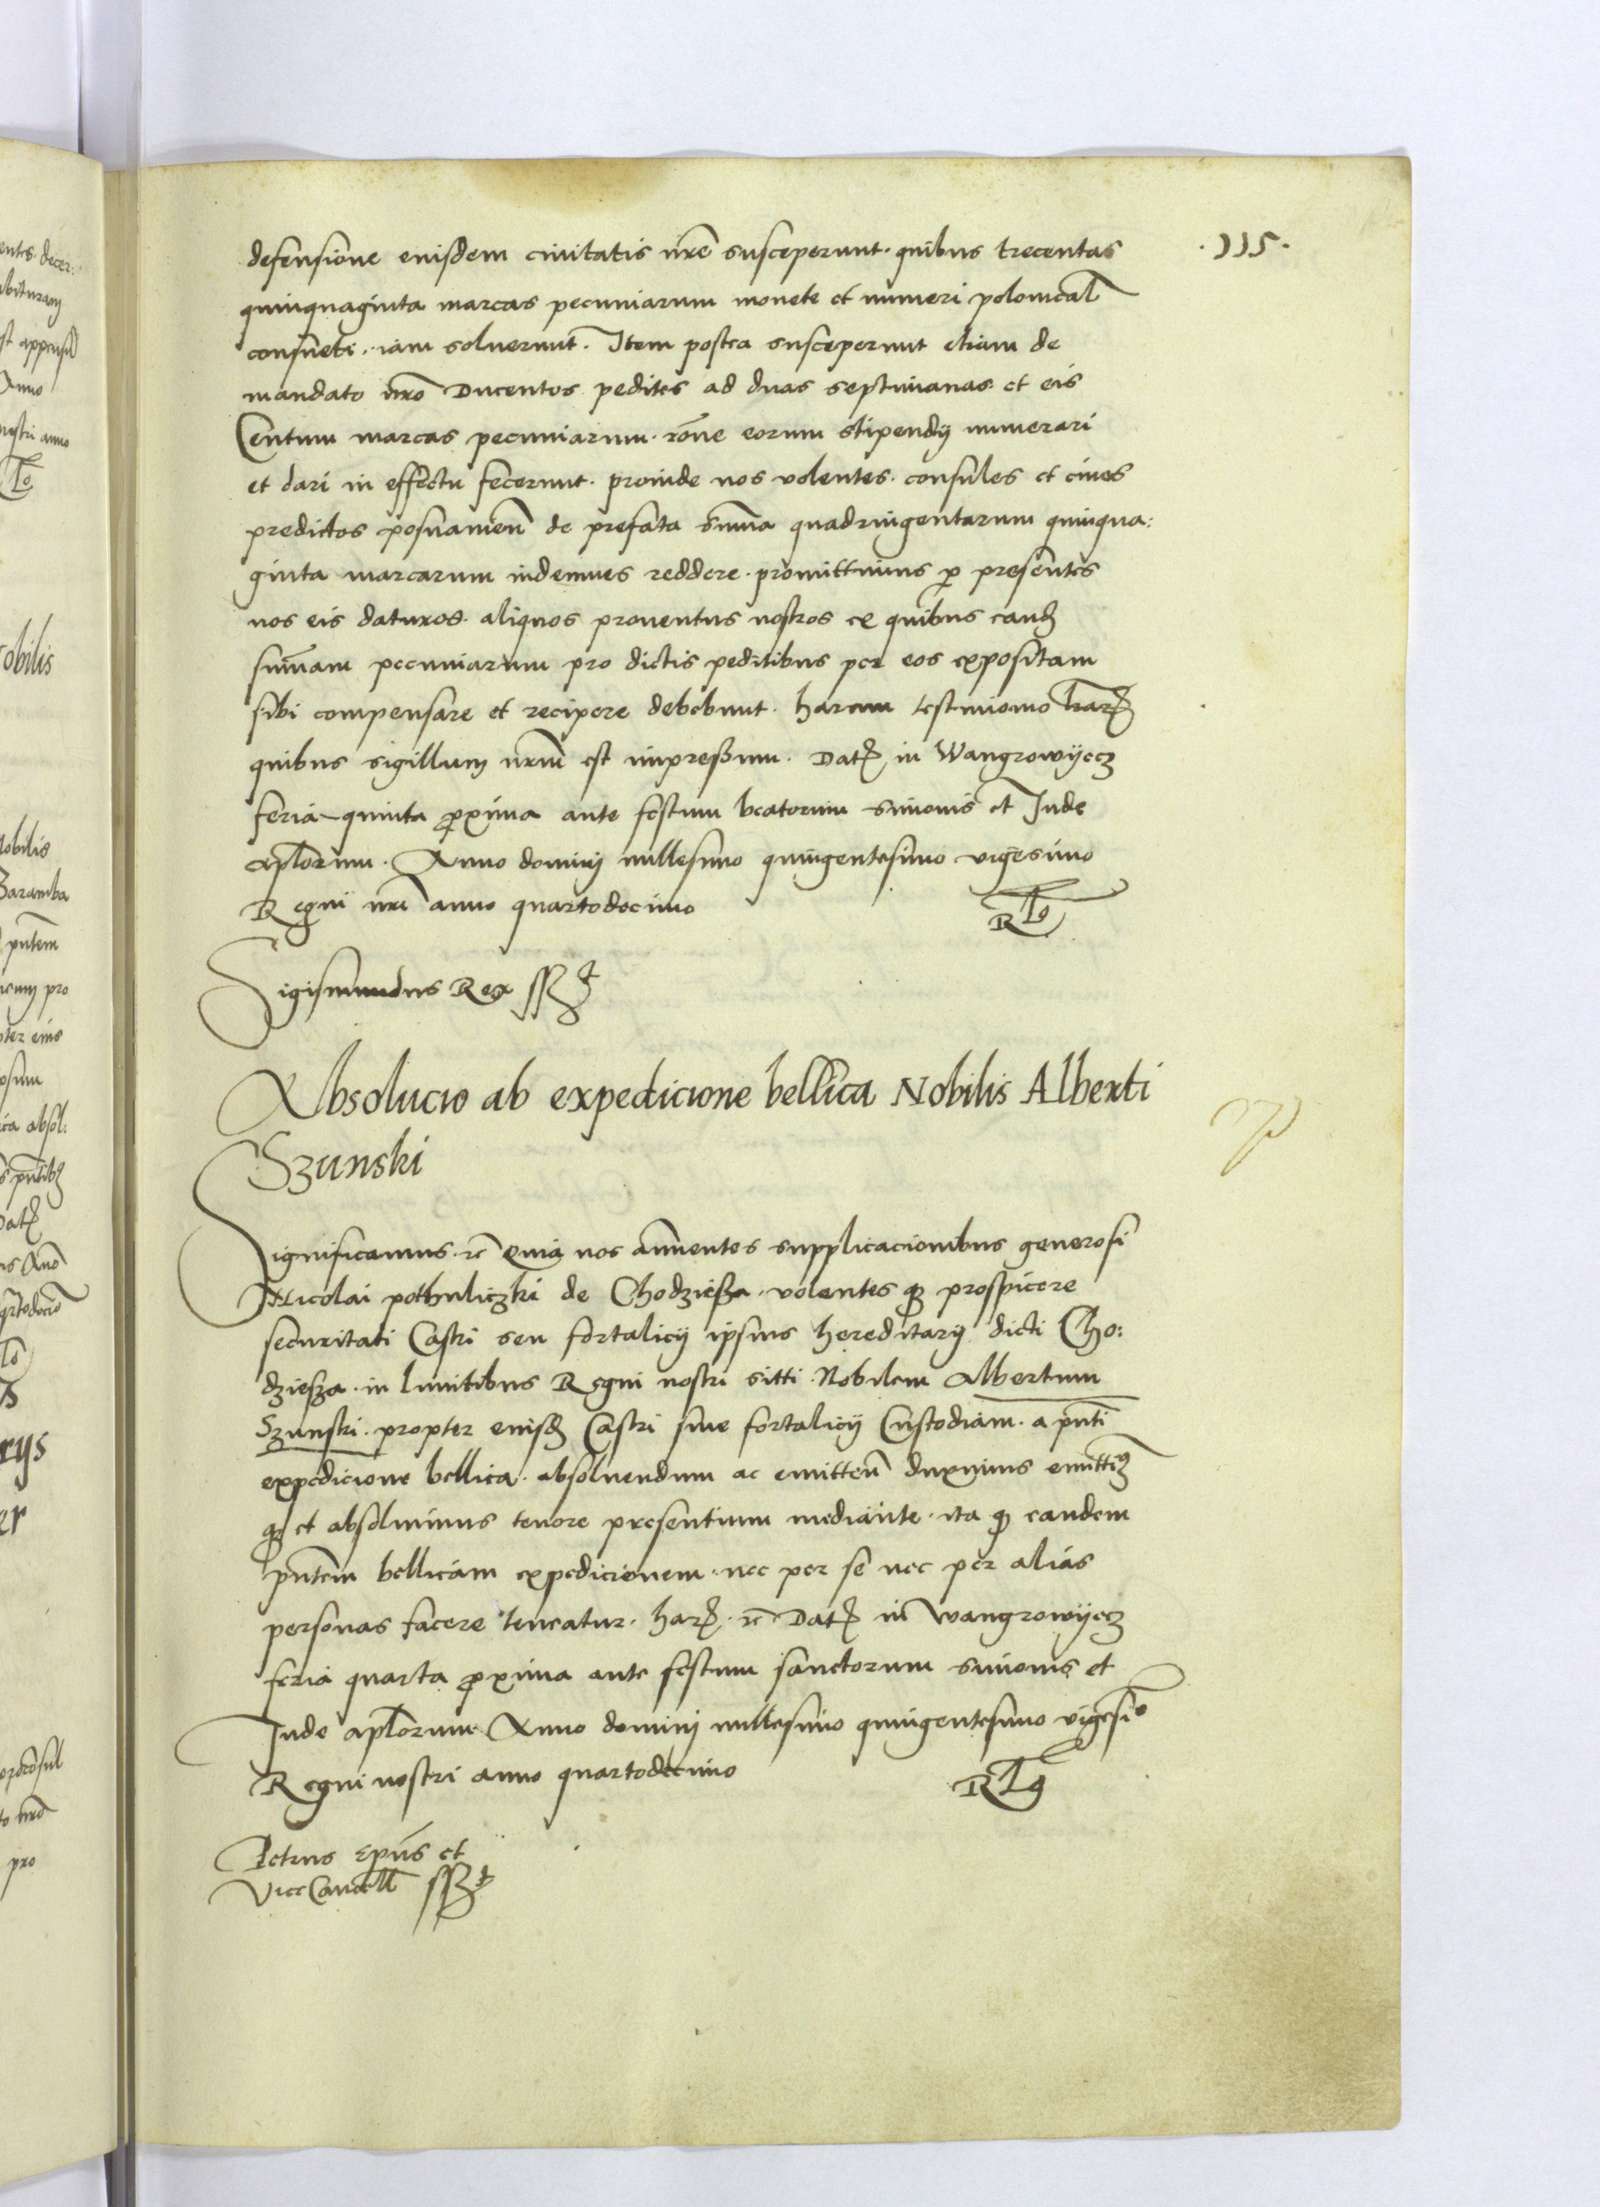 .115.
defensione eiusdem ciuitatis nrẽ susceperunt. quibus trecentas
quinquaginta marcas pecuniarum monete et numeri polonical̃
consueti. iam soluerunt. Item postea susceperunt etiam de
mandato nrõ Ducentos pedites ad duas septimanas et eis
Centum marcas pecuniarum. rõne eorum stipendij numerari
et dari in effectu fecerunt. proinde nos volentes. consules et ciues
predictos posnanieñ de prefata sum̃a quadringentarum quinqua:
ginta marcarum indemnes reddere. promittimus ꝑ presentes
nos eis daturos. aliquos prouentus nostros ex quibus eand̃
sum̃am pecuniarum pro dictis peditibus per eos expositam
sibi compensare et recipere debebunt. harum testimonio lr̃aꝝ
quibus sigillum nrm̃ est impressum. Datꝝ in Wangrowyecz
feria quinta ꝓxima ante festum beatorum Simonis et Jude
aplõrum. Anno dominj millesimo quingentesimo vigesimo
Regni nrĩ anno quartodecimo
Sigismundus Rex sszt
Absolucio ab expedicione bellica Nobilis Alberti
Szunski
Significamus rc̃ Quia nos annuentes supplicacionibus generosi
Nicolai pothuliczki de Chodziesza. volentes qꝫ prospicere
securitati Castri seu fortalicij ipsius hereditarij dicti Cho:
dziesza. in limitibus Regni nostri sitti. Nobilem Albertum
Szunski. propter eiusd̃ Castri siue fortalicij Custodiam. a pñti
expedicione bellica. absoluendum ac emitteñ duximus emittiꝰ
qꝫ et absoluimus tenore presentium mediante. ita qꝫ eandem
pñtem bellicam expedicionem. nec per se nec per alias
personas facere teneatur. harꝝ. rc̃ Datꝝ in Wangrowyecz
feria quarta ꝓxima ante festum sanctorum Simonis et
Jude aplõrum Anno dominj millesimo quingentesimo vigesio
Regni nostri anno quartodecimo
Petrus Epũs et
Vice Cancell̃ sszt